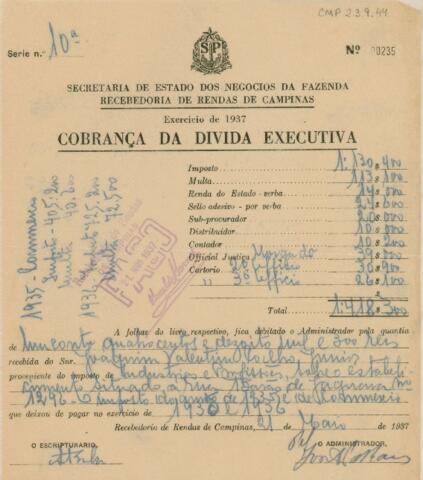 CMP 2.3.9.44
Serie n.º 10ª
Nº 00235
SP
SECRETARIA DE ESTADO DOS NEGOCIOS DA FAZENDA
RECEBEDORIA DE RENDAS DE CAMPINAS
Exercicio de 1937
COBRANÇA DA DIVIDA EXECUTIVA
Imposto 1:130$400
Multa 113$100
Renda do Estado - verba 14$000
Sello adesivo - por verba
Sub-procurador 20$000
Distribuidor 10$000
Contador 10$200
Official Justiça 39$000
Cartorio 2º Officio 36$900
" 3º Officio 26$100
Total 1:418$300
1935 - Commercio
Imposto - 405.200
Multa 40.600
1936
Imposto 725.200
Multa 72.500
A folhas do livro respectivo, fica debitado o Administrador pela quantia
de Um conto quatrocentos e dezoito mil e 300 reis
recebida do Snr. Joaquim Valentim Coelho Junior
procepiente do imposto de Industrias e Profissões, sobre o estabele-
cimento situado, á Rua Barão de Jaguara nº
1296. O imposto do anno de 1935 é de Commercio
que deixou de pagar no exercicio de 1935 e 1936
Recebedoria de Rendas de Campinas, 21 de Maio de 1937
O ESCRIPTURARIO.
O ADMINISTRADOR,